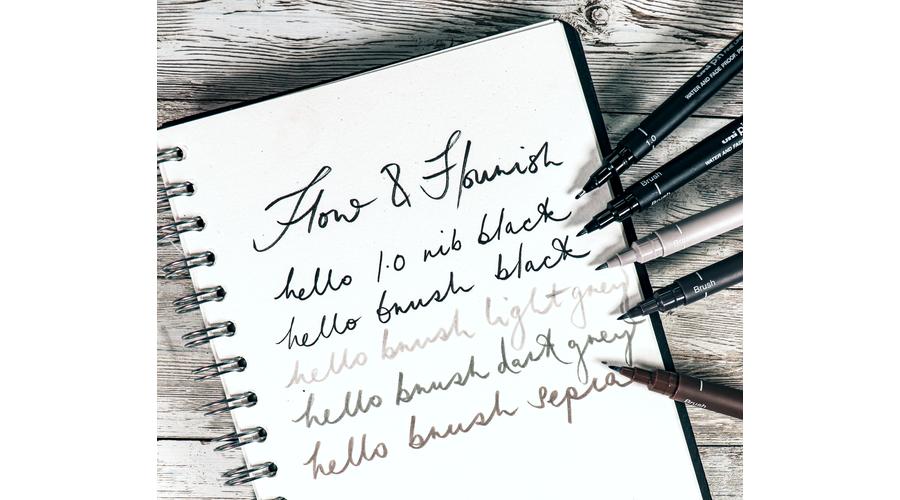 Flow & Flourish
hello 1.0 nib black
hello brush black
hello brush light grey
hello brush dark grey
hello brush sepia
WATER AND FADE PROOF, PIG
1.0
uni
WATER AND FADE
Brush
Brush
Brush